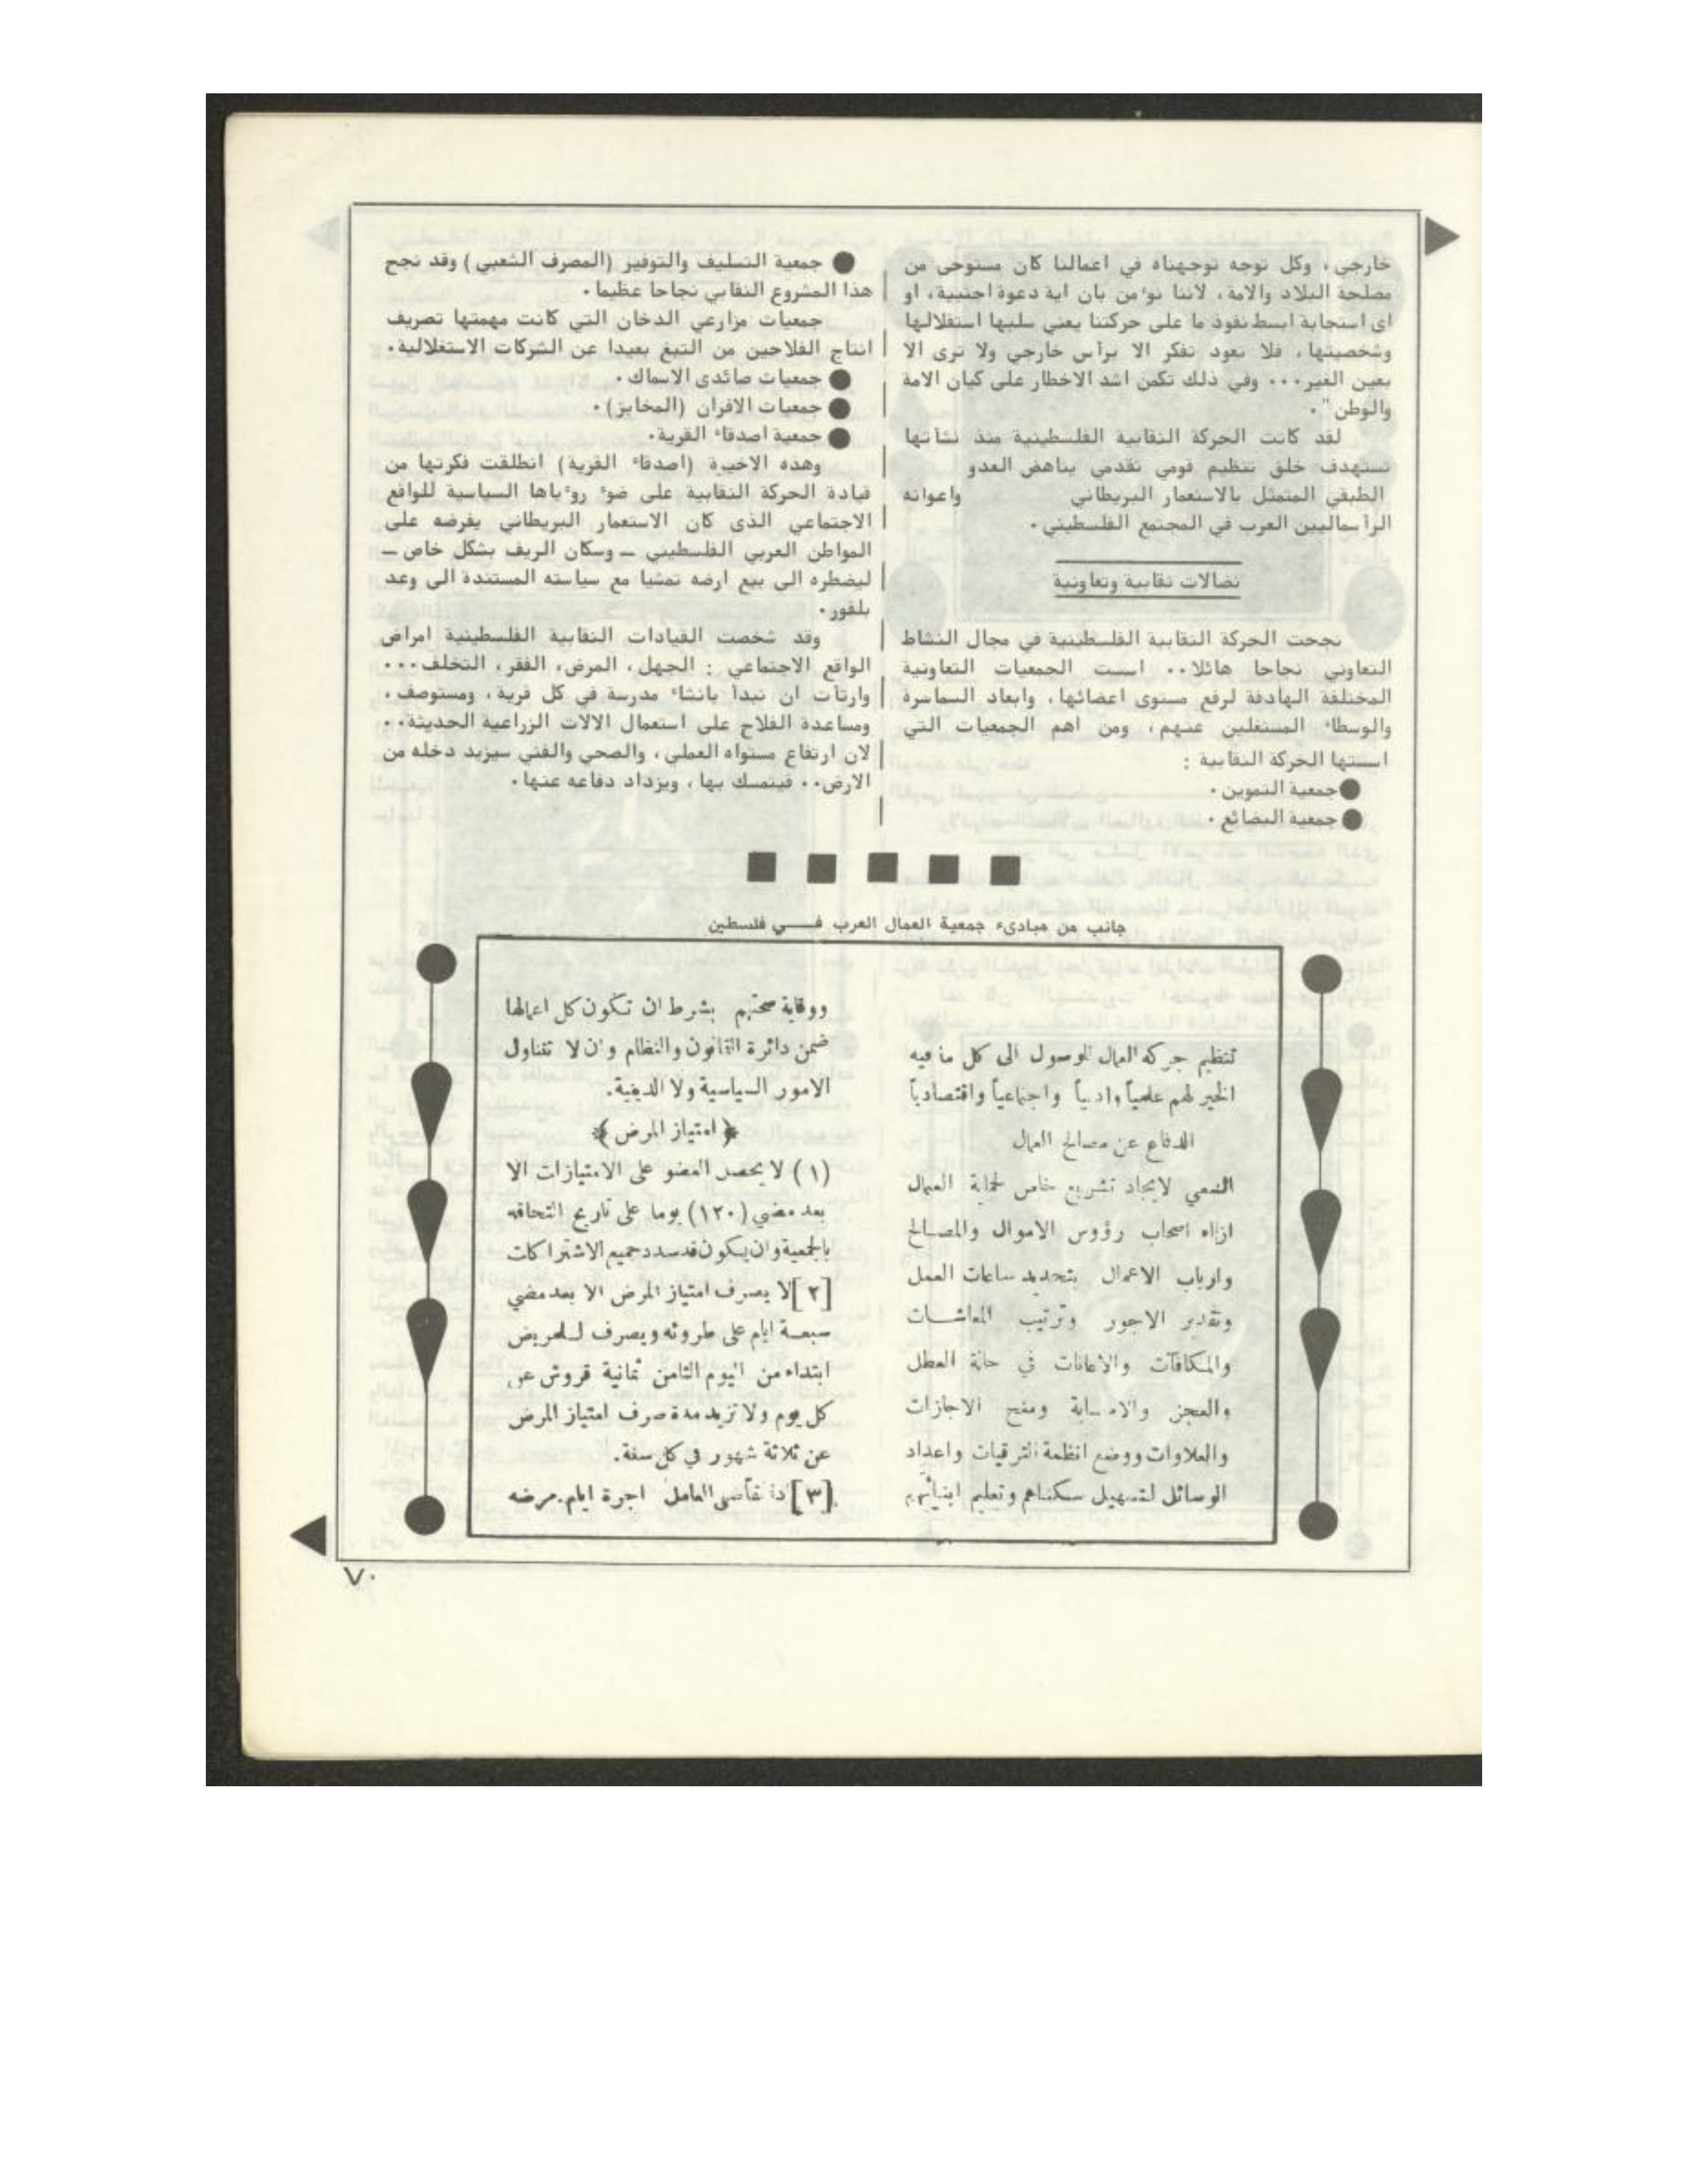 خارجي، وكل توجه توجهناه في اعمالنا كان مستوحى من
مصلحة البلاد والامة، لاننا نوءمن بان اية دعوة اجنبية، او
اى استجابة ابسط نفوذ ما على حركتنا يعني سلبها استقلالها
وشخصيتها، فلا نعود نفكر الا برأس خارجي ولا نرى الا
بعين الغير... وفي ذلك تكمن اشد الاخطار على كيان الامة
والوطن".
لقد كانت الحركة النقابية الفلسطينية منذ نشأتها
تستهدف خلق تنظيم قومي تقدمي يناهض العدو
الطبقي المتمثل بالاستعمار البريطاني واعوانه
الرأسماليين العرب في المجتمع الفلسطيني.
نضالات نقابية وتعاونية
نجحت الحركة النقابية الفلسطينية في مجال النشاط
التعاوني نجاحا هائلا.. اسست الجمعيات التعاونية
المختلفة الهادفة لرفع مستوى اعضائها، وابعاد السماسرة
والوسطاء المستغلين عنهم، ومن اهم الجمعيات التي
اسستها الحركة النقابية :
● جمعية التموين.
● جمعية البضائع.
● جمعية التسليف والتوفير (المصرف الشعبي) وقد نجح
هذا المشروع النقابي نجاحا عظيما.
جمعيات مزارعي الدخان التي كانت مهمتها تصريف
انتاج الفلاحين من التبغ بعيدا عن الشركات الاستغلالية.
● جمعيات صائدى الاسماك.
● جمعيات الافران (المخابز).
● جمعية اصدقاء القرية.
وهذه الاخيرة (اصدقاء القرية) انطلقت فكرتها من
قيادة الحركة النقابية على ضوء روءياها السياسية للواقع
الاجتماعي الذى كان الاستعمار البريطاني يفرضه على
المواطن العربي الفلسطيني ــ وسكان الريف بشكل خاص ــ
ليضطره الى بيع ارضه تمشيا مع سياسته المستندة الى وعد
بلفور.
وقد شخصت القيادات النقابية الفلسطينية امراض
الواقع الاجتماعي : الجهل، المرض، الفقر، التخلف...
وارتأت ان تبدأ بانشاء مدرسة في كل قرية، ومستوصف،
ومساعدة الفلاح على استعمال الالات الزراعية الحديثة..
لان ارتفاع مستواه العملي، والصحي والفني سيزيد دخله من
الارض.. فيتمسك بها، ويزداد دفاعه عنها.
جانب من مبادىء جمعية العمال العرب فــي فلسطين
تنظيم حركة العمال للوصول الى كل ما فيه
الخير لهم علمياً وادبياً واجتماعياً واقتصادياً
الدفاع عن مصالح العمال
السعي لايجاد تشريع خاص لحماية العمال
ازاء اصحاب رؤوس الاموال والمصالح
وارباب الاعمال بتحديد ساعات العمل
وتقدير الاجور وترتيب المعاشات
والمكافآت والاعانات في حالة العطل
والعجز والاصابة ومنح الاجازات
والعلاوات ووضع انظمة الترقيات واعداد
الوسائل لتسهيل سكناهم وتعليم ابنائهم
ووقاية صحتهم بشرط ان تكون كل اعمالها
ضمن دائرة القانون والنظام وان لا تتناول
الامور السياسية ولا الدينية.
﴿ امتياز المرض ﴾
(١) لا يحصل العضو على الامتيازات الا
بعد مضي (١٢٠) يوما على تاريخ التحاقه
بالجمعية وان يكون قد سدد جميع الاشتراكات
[٢] لا يصرف امتياز المرض الا بعد مضي
سبعة ايام على طروئه ويصرف للمريض
ابتداء من اليوم الثامن ثمانية قروش عن
كل يوم ولا تزيد مدة صرف امتياز المرض
عن ثلاثة شهور في كل سنة.
[٣] اذا تقاضى العامل اجرة ايام مرضه
٧٠